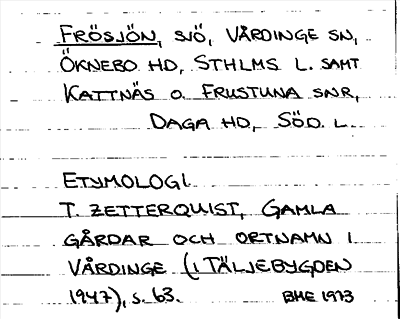 FRÖSJÖN, SJÖ, VÅRDINGE SN,
ÖKNEBO HD, STHLMS L. SAMT
KATTNÄS O. FRUSTUNA SNR,
DAGA HD, SÖD. L.
ETYMOLOGI
T. ZETTERQUIST, GAMLA
GÅRDAR OCH ORTNAMN I
VÅRDINGE (I TÄLJEBYGDEN
1947), S. 63. BHE 1973